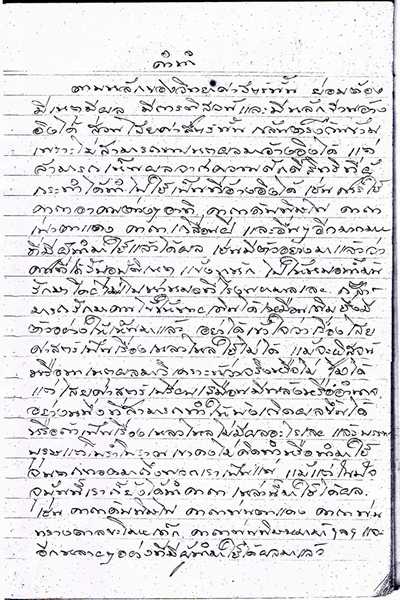 คำนำ
ตามหลักของวิทยาศาสตร์นั้น ย่อมต้อง
มีเหตุมีผล มีการพิสูจน์ และมีหลักฐานอ้าง
อิงได้ ส่วนไสยศาสตร์นั้น กลับตรงกันข้าม
เพราะไม่สามารถหาเหตุผลมาอ้างอิงได้ แต่
สามารถเห็นผลจากความศักดิ์สิทธิ์ที่ผู้
กระทำได้ทำไปใช้เป็นที่อ้างอิงได้ เช่น การใช้
คาถาอาคมต่างๆ อาทิ คาถาดับพิษไฟ คาถา
เป่าตาแดง คาถา และอื่นๆ อีกมากมาย
ที่มีผู้ทำมาใช้แล้วได้ผล เช่นมีตัวอย่างมาแล้วว่า
คนที่ได้รับอุบัติเหตุ แข้งขาหัก ไปให้หมอ
รักษา โดยไม่ไปหาหมอที่โรงพยาบาลเลย ก็สา
มารถรักษาคนไข้ให้หาย เดินได้เหมือนเดิม
ตัวอย่างให้เห็นมาแล้ว อย่าได้เข้าใจว่าเรื่องไสย
ศาสตร์เป็นเรื่องเหลวไหลใช้ไม่ได้ แม้จะพิสูจน์
หรือหาเหตุผลมาวิเคราะห์ว่าจริงหรือไม่ ไม่ได้
แต่ไสยศาสตร์เปรียบเสมือนมีพลังหรืออำนาจ
อย่างหนึ่งที่สามารถทำให้บังเกิดผลขึ้นได้
หรือถ้าเป็นเรื่องเหลวไหลไม่มีผลอะไรเลย แล้วบรรพ
บุรุษแต่โบราณเขาคงไม่คิดทำหรือนำมาใช้
จนตกทอดมาถึงพวกเราเป็นแน่ แม้แต่ในปัจ
จุบันนี้เราก็ยังได้นำคาถาเหล่านี้มาใช้ได้ผล
เช่น คาถาดับพิษไฟ คาถาพ่นตาแดง คาถาพ่น
เด็ก ฯลฯ และ
อีกหลายๆ อย่างที่มีผู้นำมาใช้ได้ผลมาแล้ว